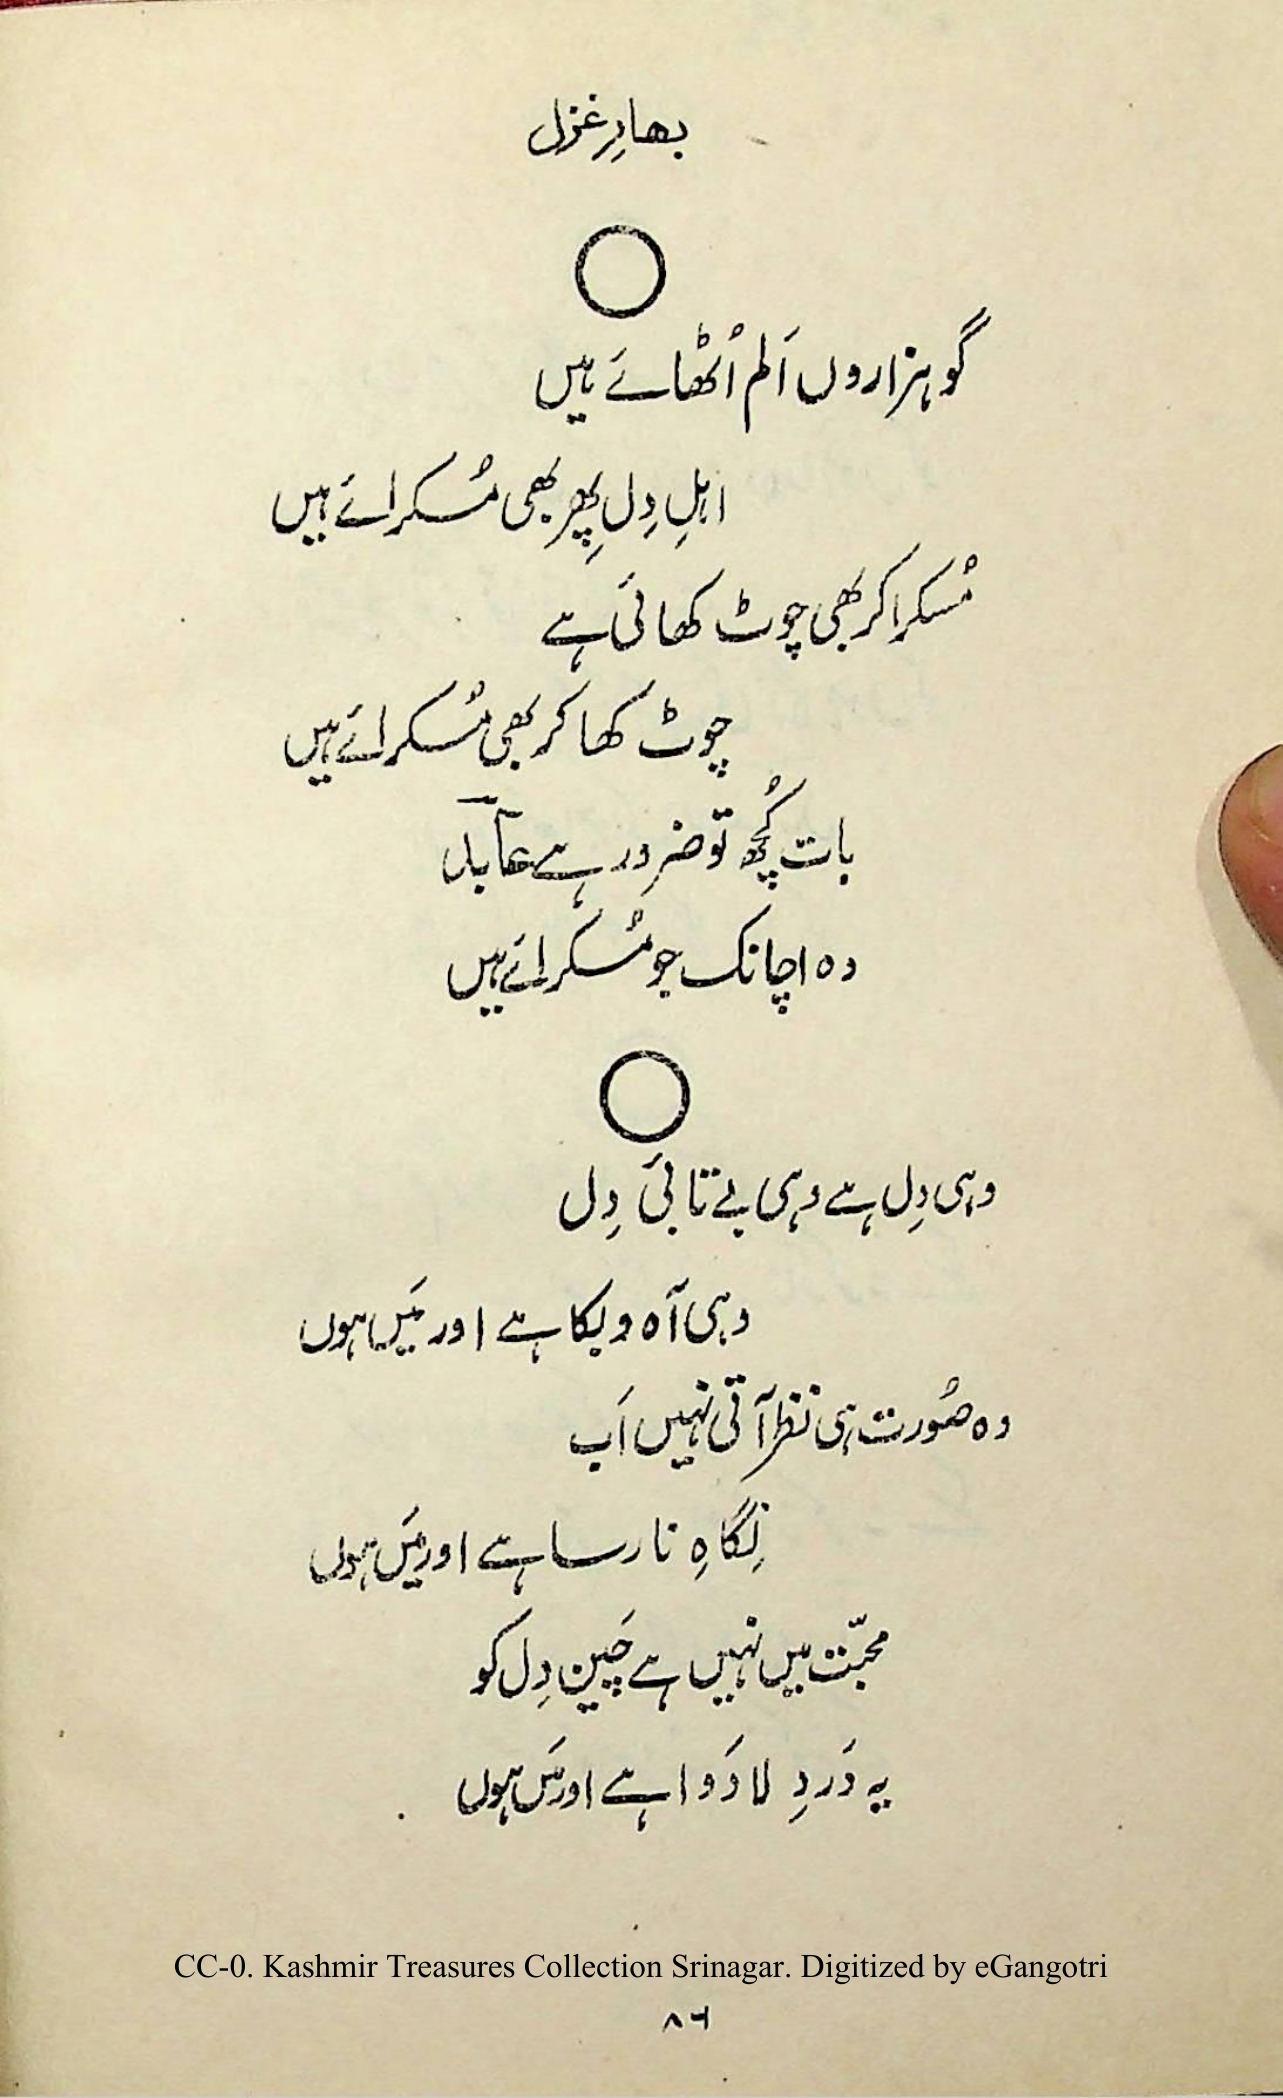 بھارِ غزل
گو ہزاروں اَلم اُٹھائے ہیں
اہلِ دِل پِھر بھی مُسکرائے ہیں
مُسکرا کر بھی چوٹ کھائی ہے
چوٹ کھا کر بھی مُسکرائے ہیں
بات کُچھ تو ضرور ہے
وہ اچانک جو مُسکرائے ہیں
وہی دِل ہے وہی بے تابئ دِل
وہی آہ و بکا ہے اور مَیں ہوں
وہ صُورت ہی نظر آتی نہیں اَب
نِگاہِ نارسا ہے اور مَیں ہوں
محبّت میں نہیں ہے چَین دِل کو
یہ دَردِ لا دَوا ہے اور مَیں ہوں
CC-0. Kashmir Treasures Collection Srinagar. Digitized by eGangotri
۸۶